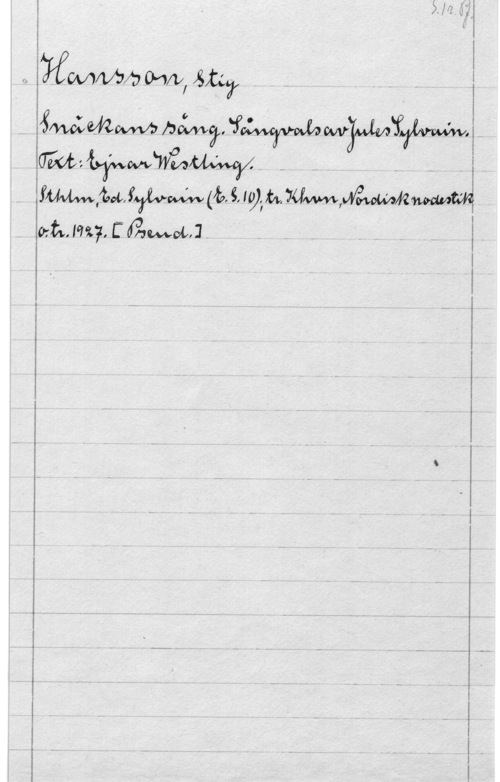 Hansson, Stig
Snäckans sång. Sångvals av Jules Sylvain.
Text: Ejnar Westling.
Sthlm, Ed. Sylvain (E. S. 10), tr. Khvn, Nordisk nodestik
o. tr. 1927. [Pseud.]